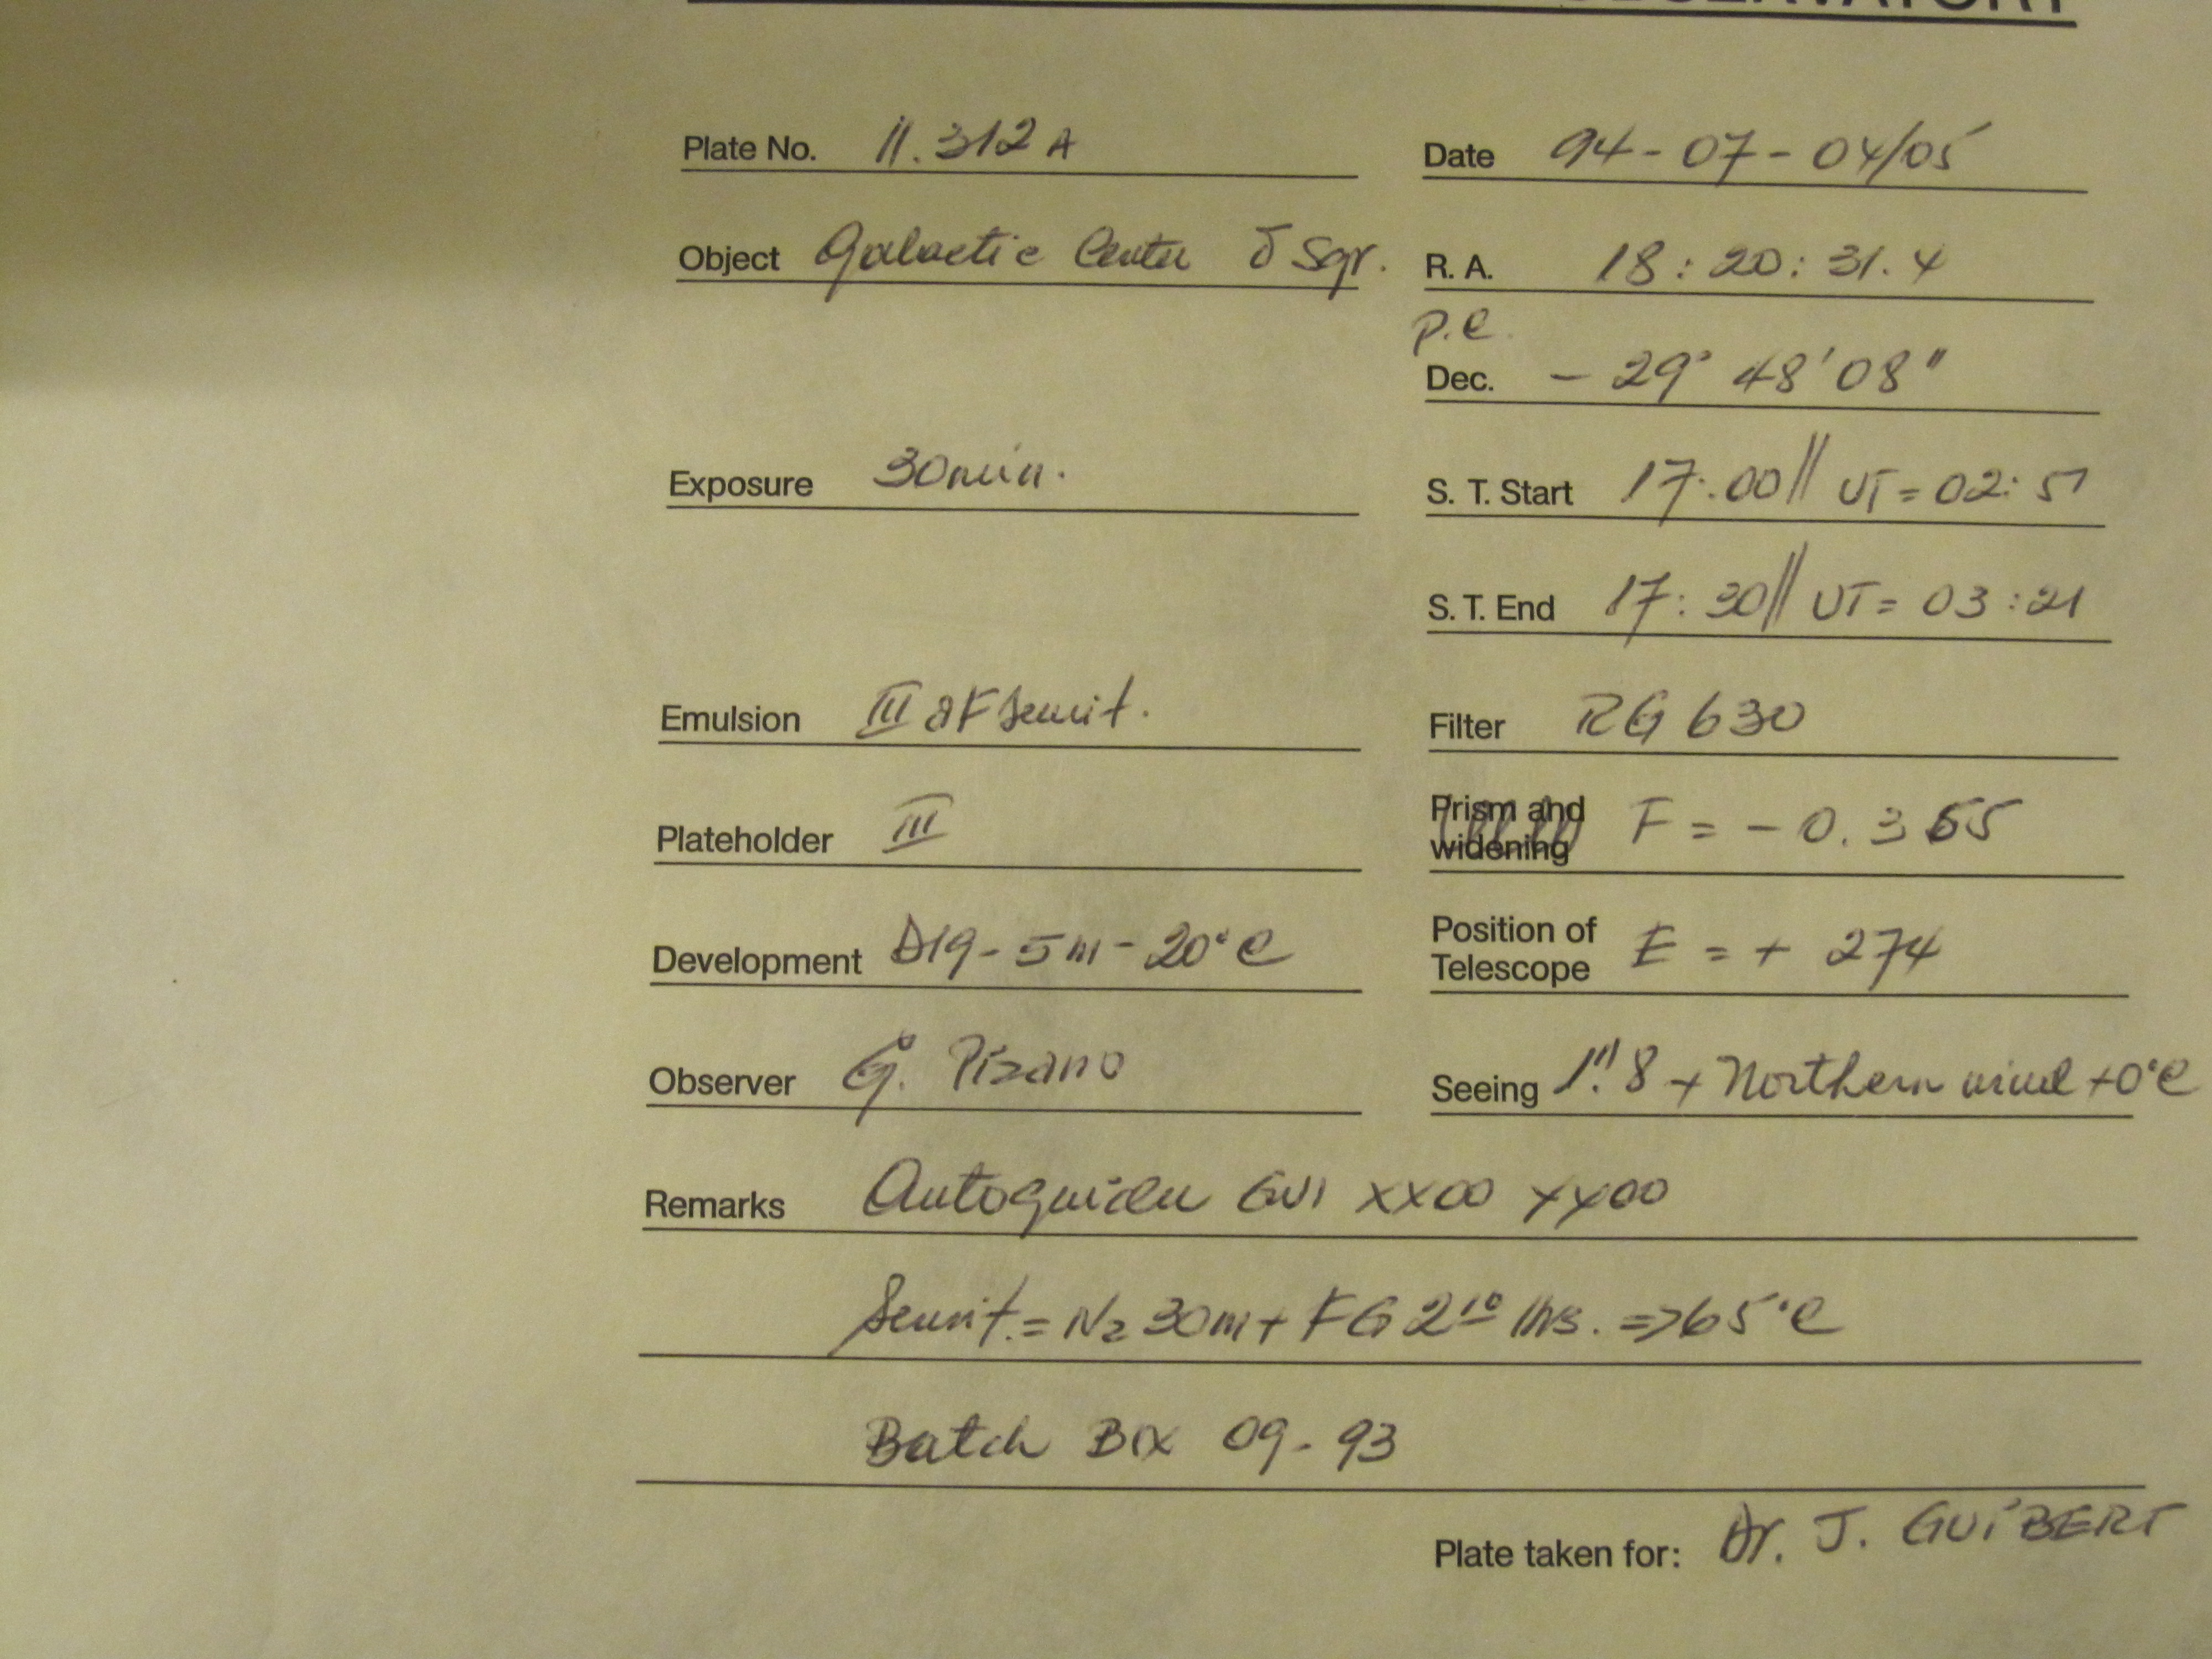 OBSERVATORY
Plate No. 11.312 A Date 94-07-04/05
Object Galactic Center δ Sgr. R. A. 18:20:31.4
p.e.
Dec. -29° 48' 08"
Exposure 30min. S. T. Start 17:00// UT=02:51
S. T. End 17:30// UT=03:21
Emulsion III aF sensit. Filter RG 630
Plateholder III Prism and widening F = -0.355
Development D19-5m-20°C Position of Telescope E = + 274
Observer G. Pizarro Seeing 1".8 + Northern wind +0°C
Remarks Autoguider GV1 XX00 YY00
Sensit.= N2 30m+ FG 2¹⁰ hrs. =>65°C
Batch Box 09-93
Plate taken for: Dr. J. GUIBERT